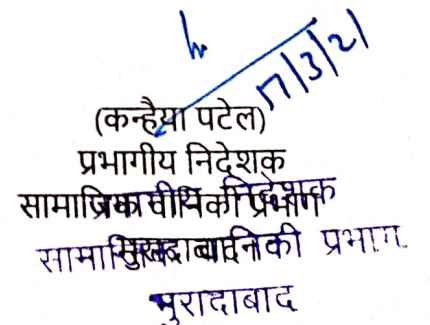 17/3/21
(कन्हैया पटेल)
प्रभागीय निदेशक
सामाजिक वानिकी प्रभाग
मुरादाबाद
प्रभागीय निदेशक
सामाजिक वानिकी प्रभाग.
मुरादाबाद